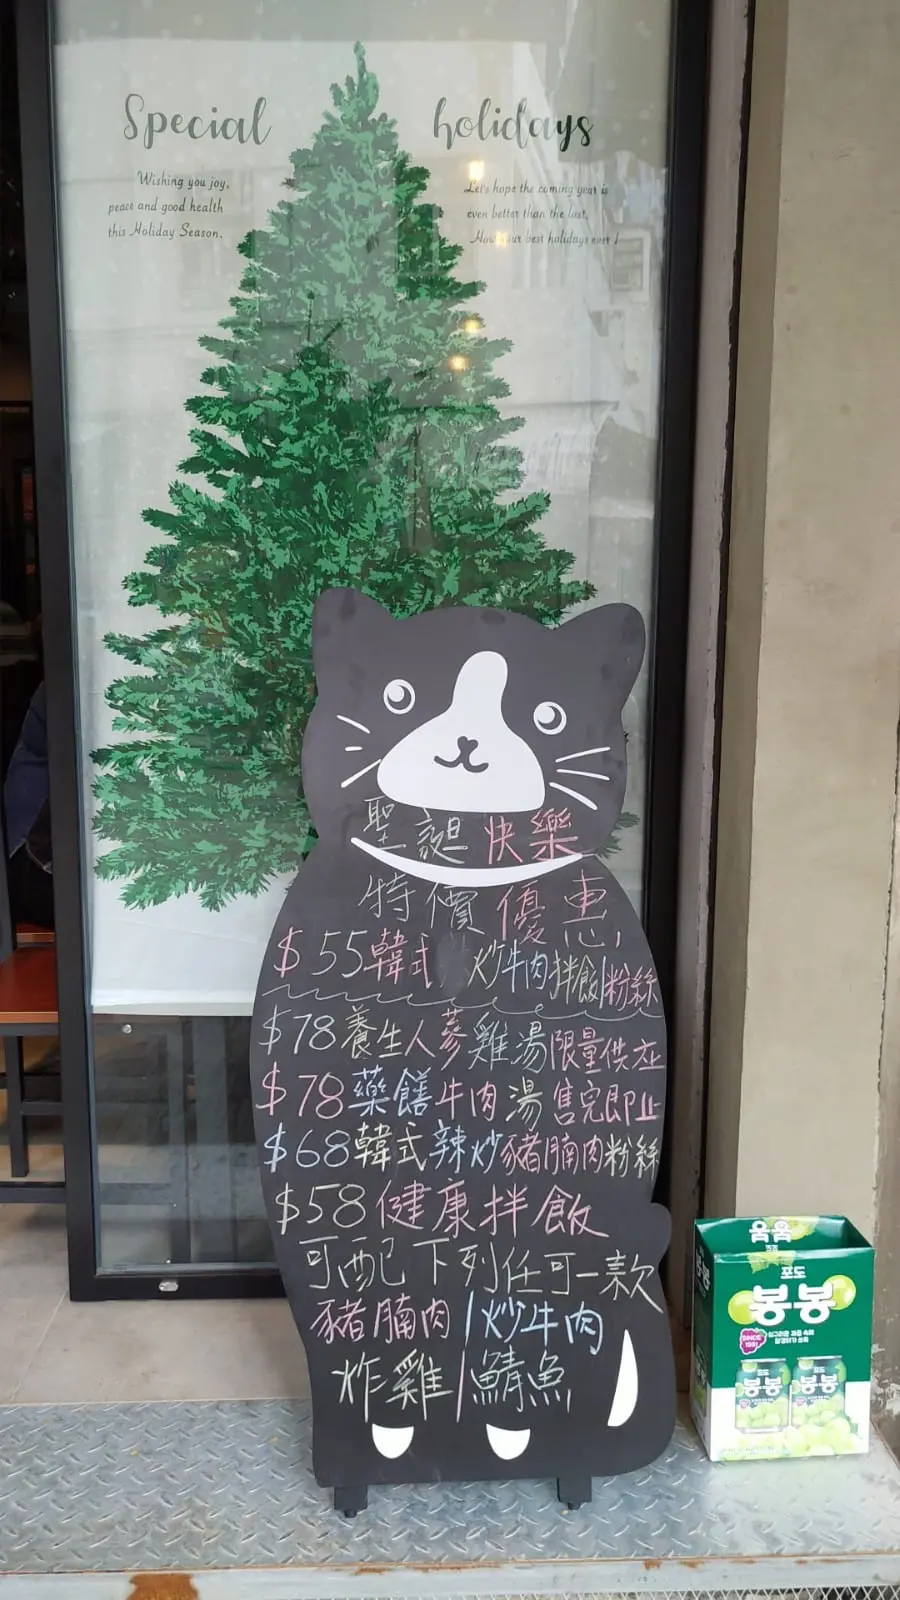 Special holidays
Wishing you joy,
peace and good health
this Holiday Season.
Let's hope the coming year is
even better than the last.
your best holidays ever !
聖誕快樂
特價優惠,
$55韓式 炒牛肉拌飯/粉絲
$78養生人蔘雞湯限量供應
$78藥膳牛肉湯售完即止
$68韓式辣炒豬腩肉粉絲
$58健康拌飯
可配下列任可一款
豬腩肉/炒牛肉
炸雞/鯖魚
포도
봉봉
SINCE
1981
포도
봉봉
봉봉